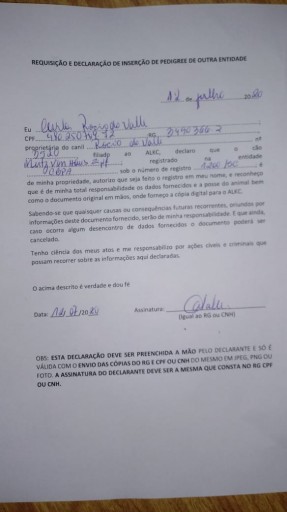 REQUISIÇÃO E DECLARAÇÃO DE INSERÇÃO DE PEDIGREE DE OUTRA ENTIDADE
12 de julho 2020
Eu Carla Rocio de Valli
CPF RG
proprietária do canil Rocio de Valli nº
filiado ao ALKC, declaro que o cão
registrado na entidade
sob o número de registro é
de minha propriedade, autorizo que seja feito o registro em meu nome, e reconheço
que é de minha total responsabilidade os dados fornecidos e a posse do animal bem
como o documento original em mãos, onde forneço a cópia digital para o ALKC.
Sabendo-se que quaisquer causas ou consequências futuras recorrentes, oriundos por
informações deste documento fornecido, serão de minha responsabilidade. E que ainda,
caso ocorra algum desencontro de dados fornecidos o documento poderá ser
cancelado.
Tenho ciência dos meus atos e me responsabilizo por ações cíveis e criminais que
possam recorrer sobre as informações aqui declaradas.
O acima descrito é verdade e dou fé
Data: Assinatura:
(Igual ao RG ou CNH)
OBS: ESTA DECLARAÇÃO DEVE SER PREENCHIDA A MÃO PELO DECLARANTE E SÓ É
VÁLIDA COM O ENVIO DAS CÓPIAS DO RG E CPF OU CNH DO MESMO EM JPEG, PNG OU
FOTO. A ASSINATURA DO DECLARANTE DEVE SER A MESMA QUE CONSTA NO RG CPF
OU CNH.